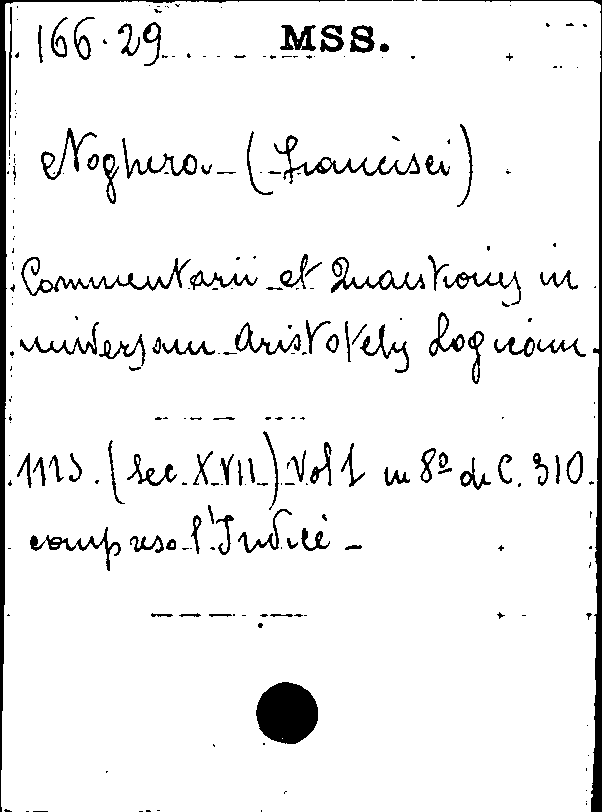 166.29 MSS.
Noghera (Francisci)
Commentarii et Quaestiones in
universam Aristotelis Logicam.
MS. (Sec. XVII) Vol 1 in 8º di C. 310
compreso l'Indice